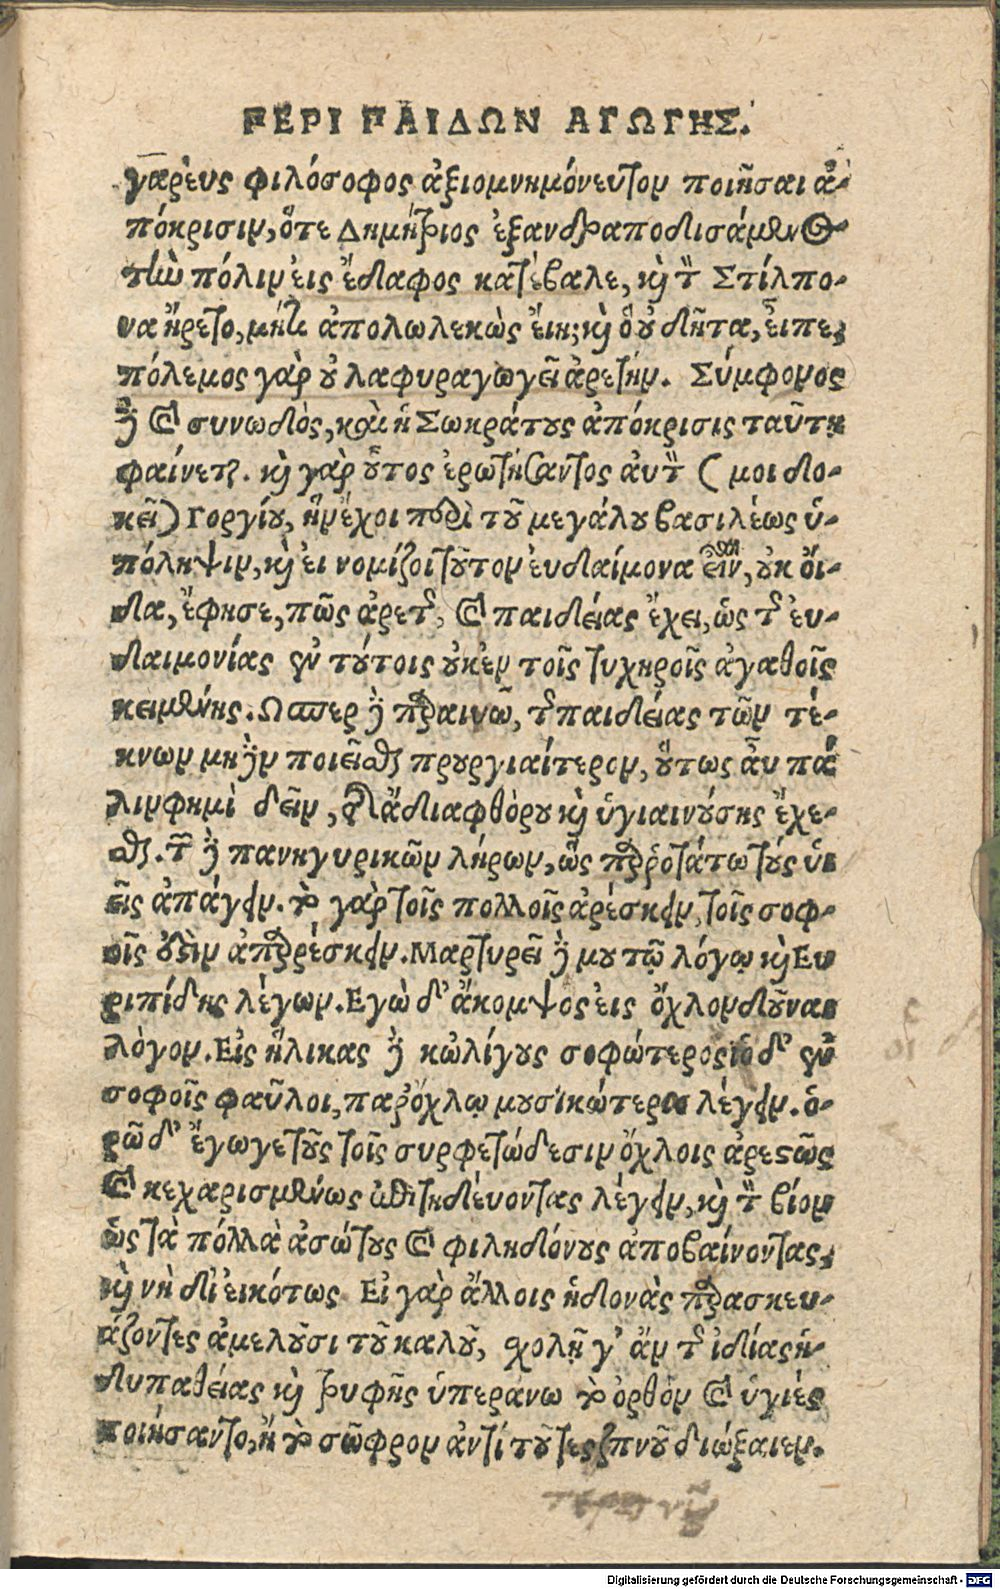 ΠΕΡΙ ΠΑΙΔΩΝ ΑΓΩΓΗΣ.
γαρεὺς φιλόσοφος ἀξιομνημόνευτον ποιῆσαι ἀ-
πόκρισιν, ὅτε Δημήτριος ἐξανδραποδισάμενος
τὴν πόλιν εἰς ἔδαφος κατέβαλε, καὶ τὸν Στίλπο-
να ἤρετο, μήτι ἀπολωλεκὼς εἴη; καὶ ὃ οὐ δῆτα, εἶπε,
πόλεμος γὰρ οὐ λαφυραγωγεῖ ἀρετήν. Σύμφονος
δὲ καὶ συνῳδὸς, καὶ ἡ Σωκράτους ἀπόκρισις ταῦτῃ
φαίνεται. καὶ γὰρ οὗτος ἐρωτήσαντος αὐτὸν (μοι δο-
κεῖ) Γοργίου, ἣν ἔχοι περὶ τοῦ μεγάλου βασιλέως ὑ-
πόληψιν, καὶ εἰ νομίζοι τοῦτον εὐδαίμονα εἶναι, οὐκ οἶ-
δα, ἔφησε, πῶς ἀρετῆς καὶ παιδείας ἔχει, ὡς τῆς εὐ-
δαιμονίας ἐν τούτοις οὐκ ἐν τοῖς τυχηροῖς ἀγαθοῖς
κειμένης. Ωσπερ δὲ παραινῶ, τῆς παιδείας τῶν τέ-
κνων μηδὲν ποιεῖσθαι προυργιαίτερον, οὕτως αὖ πά
λιν φημὶ δεῖν, τῆς ἀδιαφθόρου καὶ ὑγιαινούσης ἔχε-
σθαι. τῶν δὲ πανηγυρικῶν λήρων, ὡς ποῤῥοτάτω τοὺς ὑι
εῖς ἀπάγειν. τὸ γὰρ τοῖς πολλοῖς ἀρέσκειν, τοῖς σοφ-
οῖς ἐστὶν ἀπαρέσκειν. Μαρτυρεῖ δέ μου τῷ λόγῳ καὶ Ευ
ριπίδης λέγων. Εγὼ δ' ἄκομψος εἰς ὄχλον δοῦναι
λὸγον. Εἰς ἥλικας δὲ κὠλίγους σοφώτερος· οἱ δ' ἐν
σοφοῖς φαῦλοι, παρ' ὄχλῳ μουσικώτεροι λέγειν. ὁ-
ρῶ δ' ἔγωγε τοὺς τοῖς συρφετώδεσιν ὄχλοις ἀρεστῶς
καὶ κεχαρισμένως ἐπιτηδεύοντας λέγειν, καὶ τὸν βίον
ὡς τὰ πόλλὰ ἀσώτους καὶ φιληδόνους ἀποβαίνοντας,
καὶ νὴ δι' εἰκότως Εἰ γὰρ ἄλλοις ἡδονὰς παρασκευ-
άζοντες ἀμελοῦσι τοῦ καλοῦ, σχολῇ γ' ἂν τῆς ἰδίας ἡ-
δυπαθείας καὶ τρυφῆς ὑπεράνω τὸ ὀρθὸν καὶ ὑγιὲς
ποιήσαντο, ἢ τὸ σῶφρον ἀντὶ τοῦ τερπνοῦ διώξαιεν.
Digitalisierung gefördert durch die Deutsche Forschungsgemeinschaft - DFG